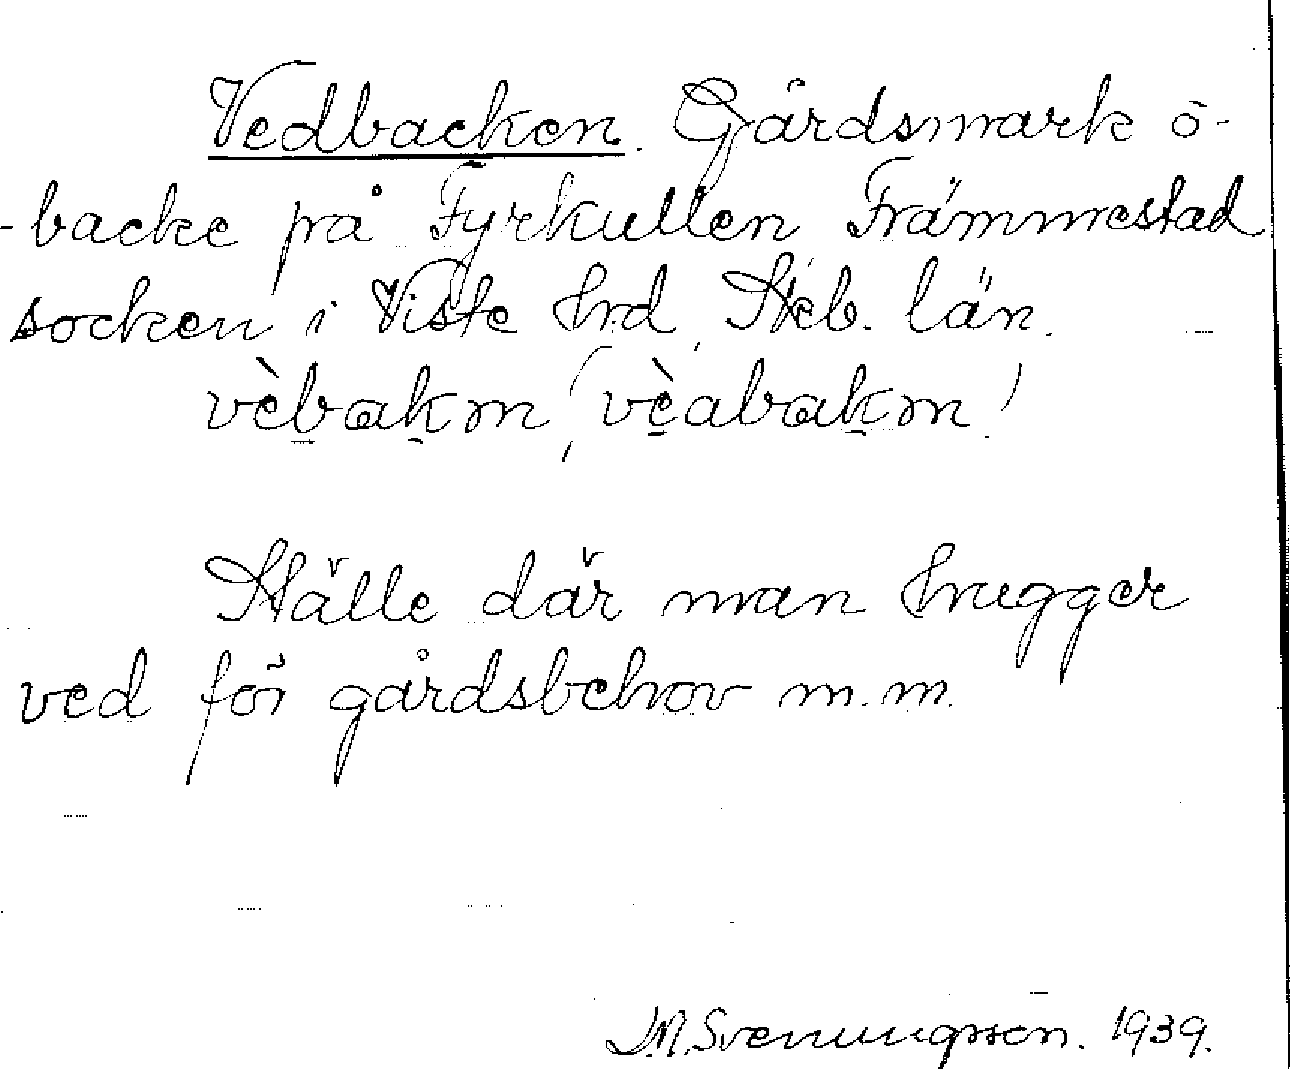 Vedbacken. Gårdsmark ö-
-backe på Fyrkullen Främmestad
socken i Viste hrd, Skb. län.
vèbakm, (vèabakm!
Ställe där man hugger
ved för gårdsbehov m.m.
J.M. Svenungsson. 1939.